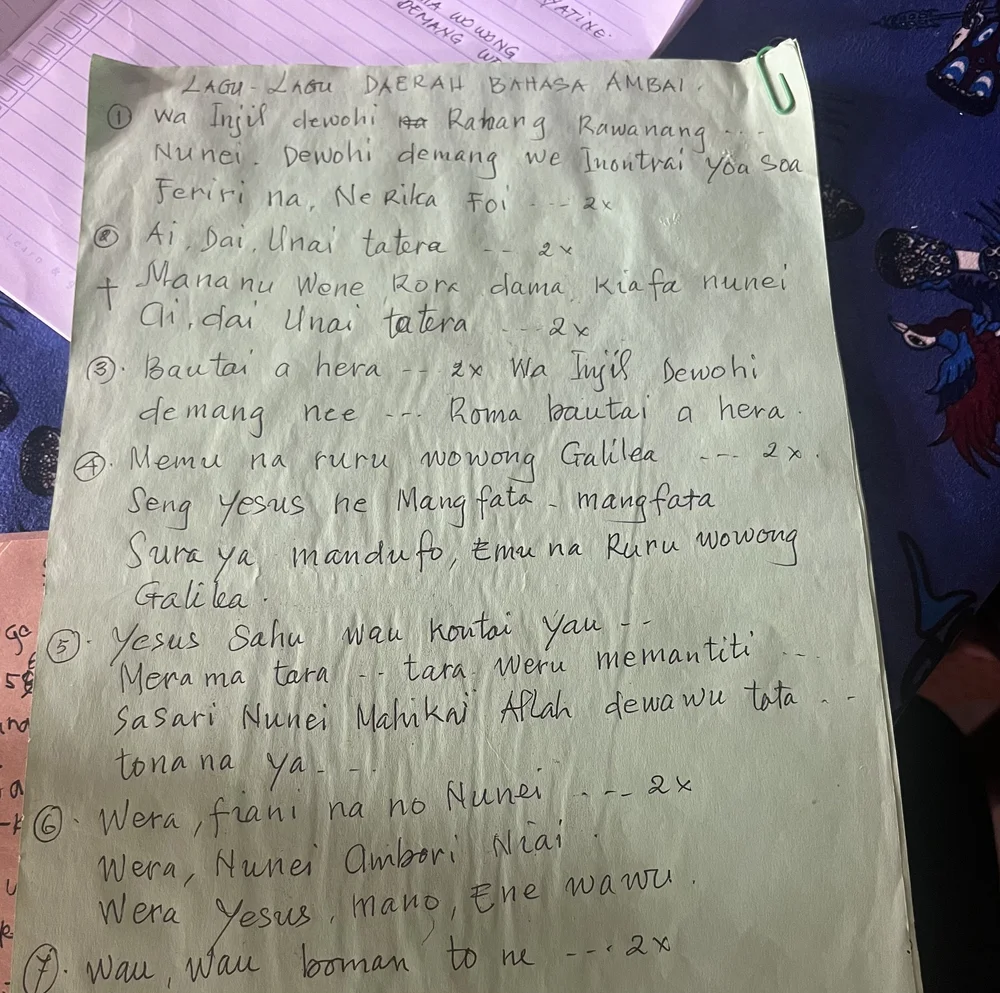 WOWONG
DEMANG
LAGU-LAGU DAERAH BAHASA AMBAI.
① Wa Injil dewohi Rahang Rawanang ...
Nunei. Dewohi demang we Inontrai yoa Soa
Feriri na, Ne Rika Foi --- 2x
② Ai, Dai, Unai tatera --- 2x
+ Mananu Wene Rora dama, Kiafa nunei
Ai, dai Unai tatera --- 2x
③. Bautai a hera --- 2x Wa Injil Dewohi
demang nee --- Roma bautai a hera.
④. Memu na ruru wowong Galilea --- 2x.
Seng Yesus ne Mangfata - mangfata
Sura ya mandufo, Emu na Ruru wowong
Galilea.
⑤. Yesus Sahu wau Kontai yau --
Merama tara -- tara weru memantiti ...
Sasari Nunei Mahikai Allah dewawu tata ..-
tonana ya - - -
⑥. Wera, fiani na no Nunei --- 2x
Wera, Nunei Ambori Niai.
Wera Yesus, mano, Ene wawu.
⑦. Wau, Wau boman to ne --- 2x